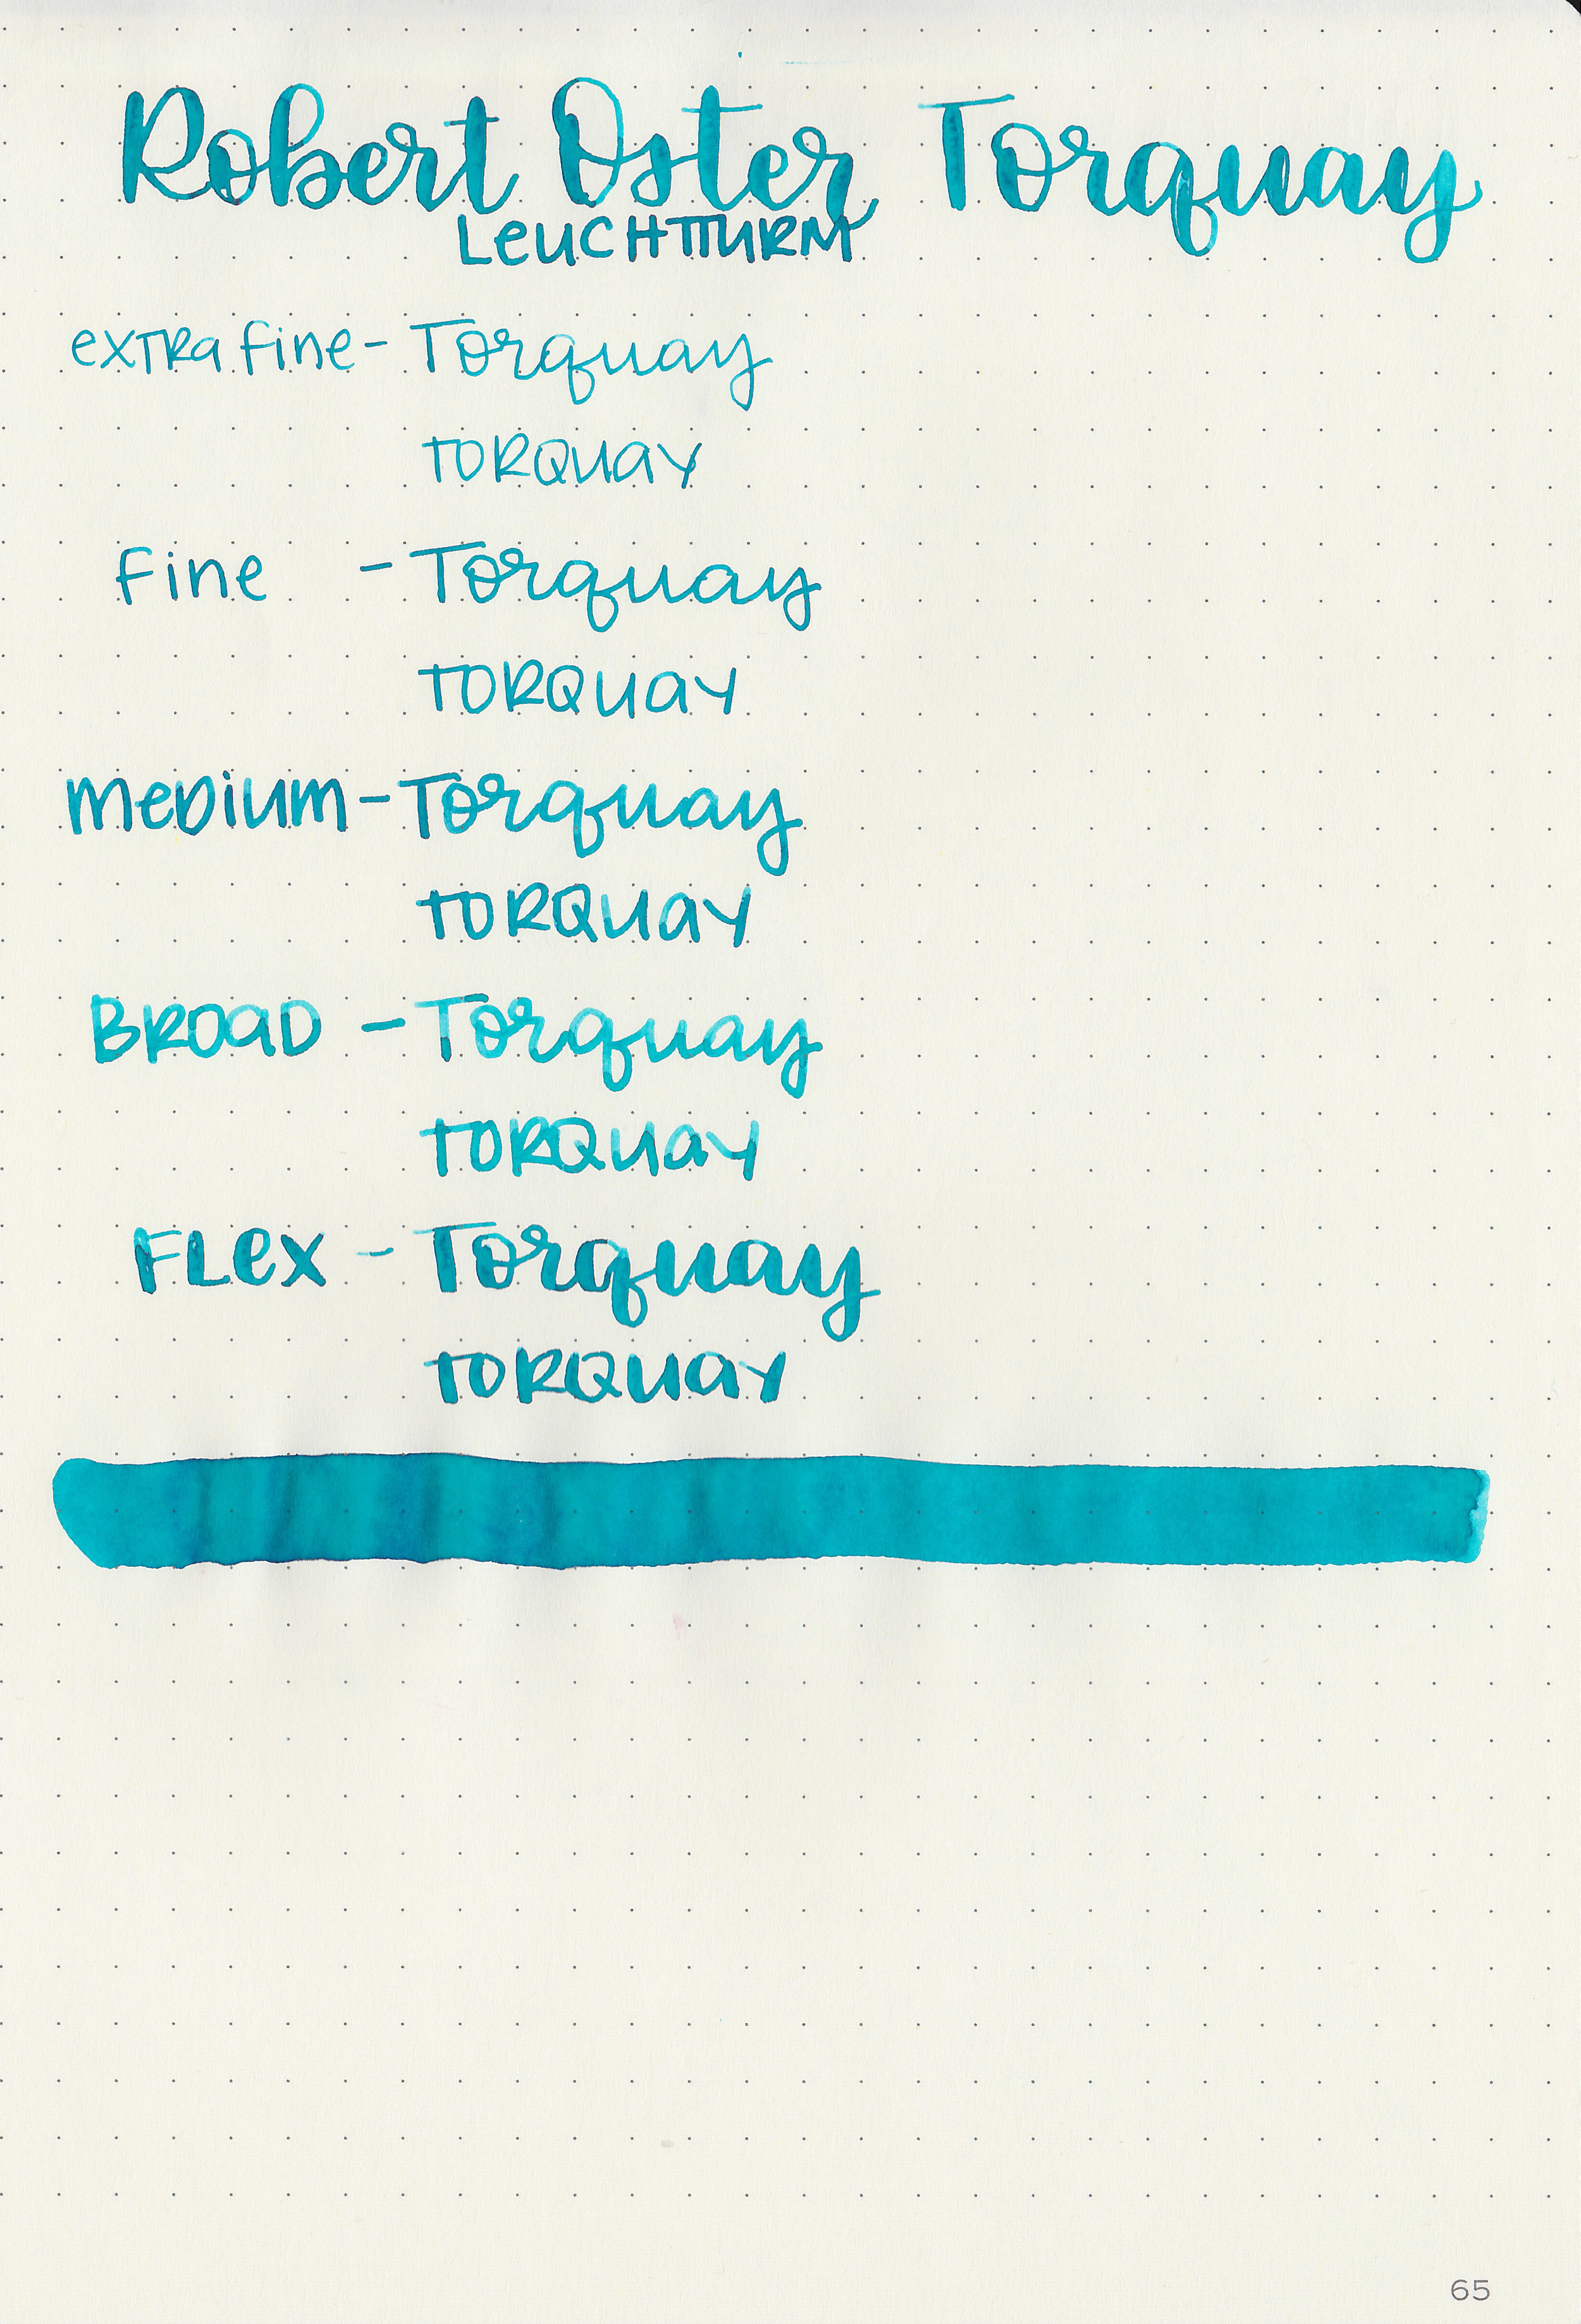 Robert Oster Torquay
LeuchtTurm
extra fine - Torquay
TORQUAY
fine - Torquay
TORQUAY
meDium - Torquay
TORQUAY
BROaD - Torquay
TORQUAY
FLex - Torquay
TORQUAY
65